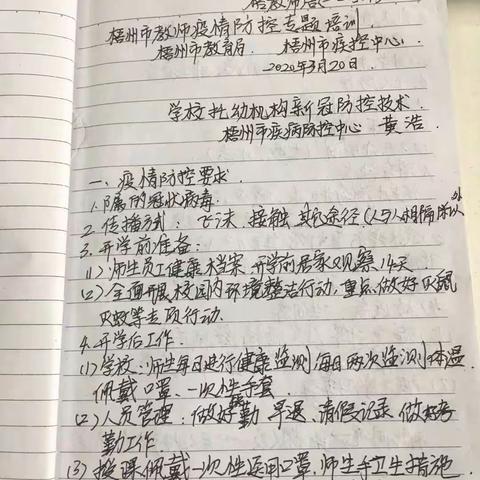 梧州市教师疫情防控专题培训
梧州市教育局 梧州市疾控中心.
2020年3月20日.
学校托幼机构新冠防控技术.
梧州市疾病防控中心 黄浩.
一、疫情防控要求.
1.β属的冠状病毒.
2.传播方式: 飞沫、接触、其它途径(人与人相隔1m以
3.开学前准备:
(1)师生员工健康档案,开学前居家观察14天
(2)全面开展校园内环境整洁行动,重点做好灭鼠
灭蚊等专项行动.
4.开学后工作.
(1)学校:师生每日进行健康监测,每日两次监测体温.
佩戴口罩、一次性手套
(2)人员管理:做好勤、早退、请假记录、做好考
勤工作.
(3)授课佩戴一次性医用口罩、师生手卫生措施.